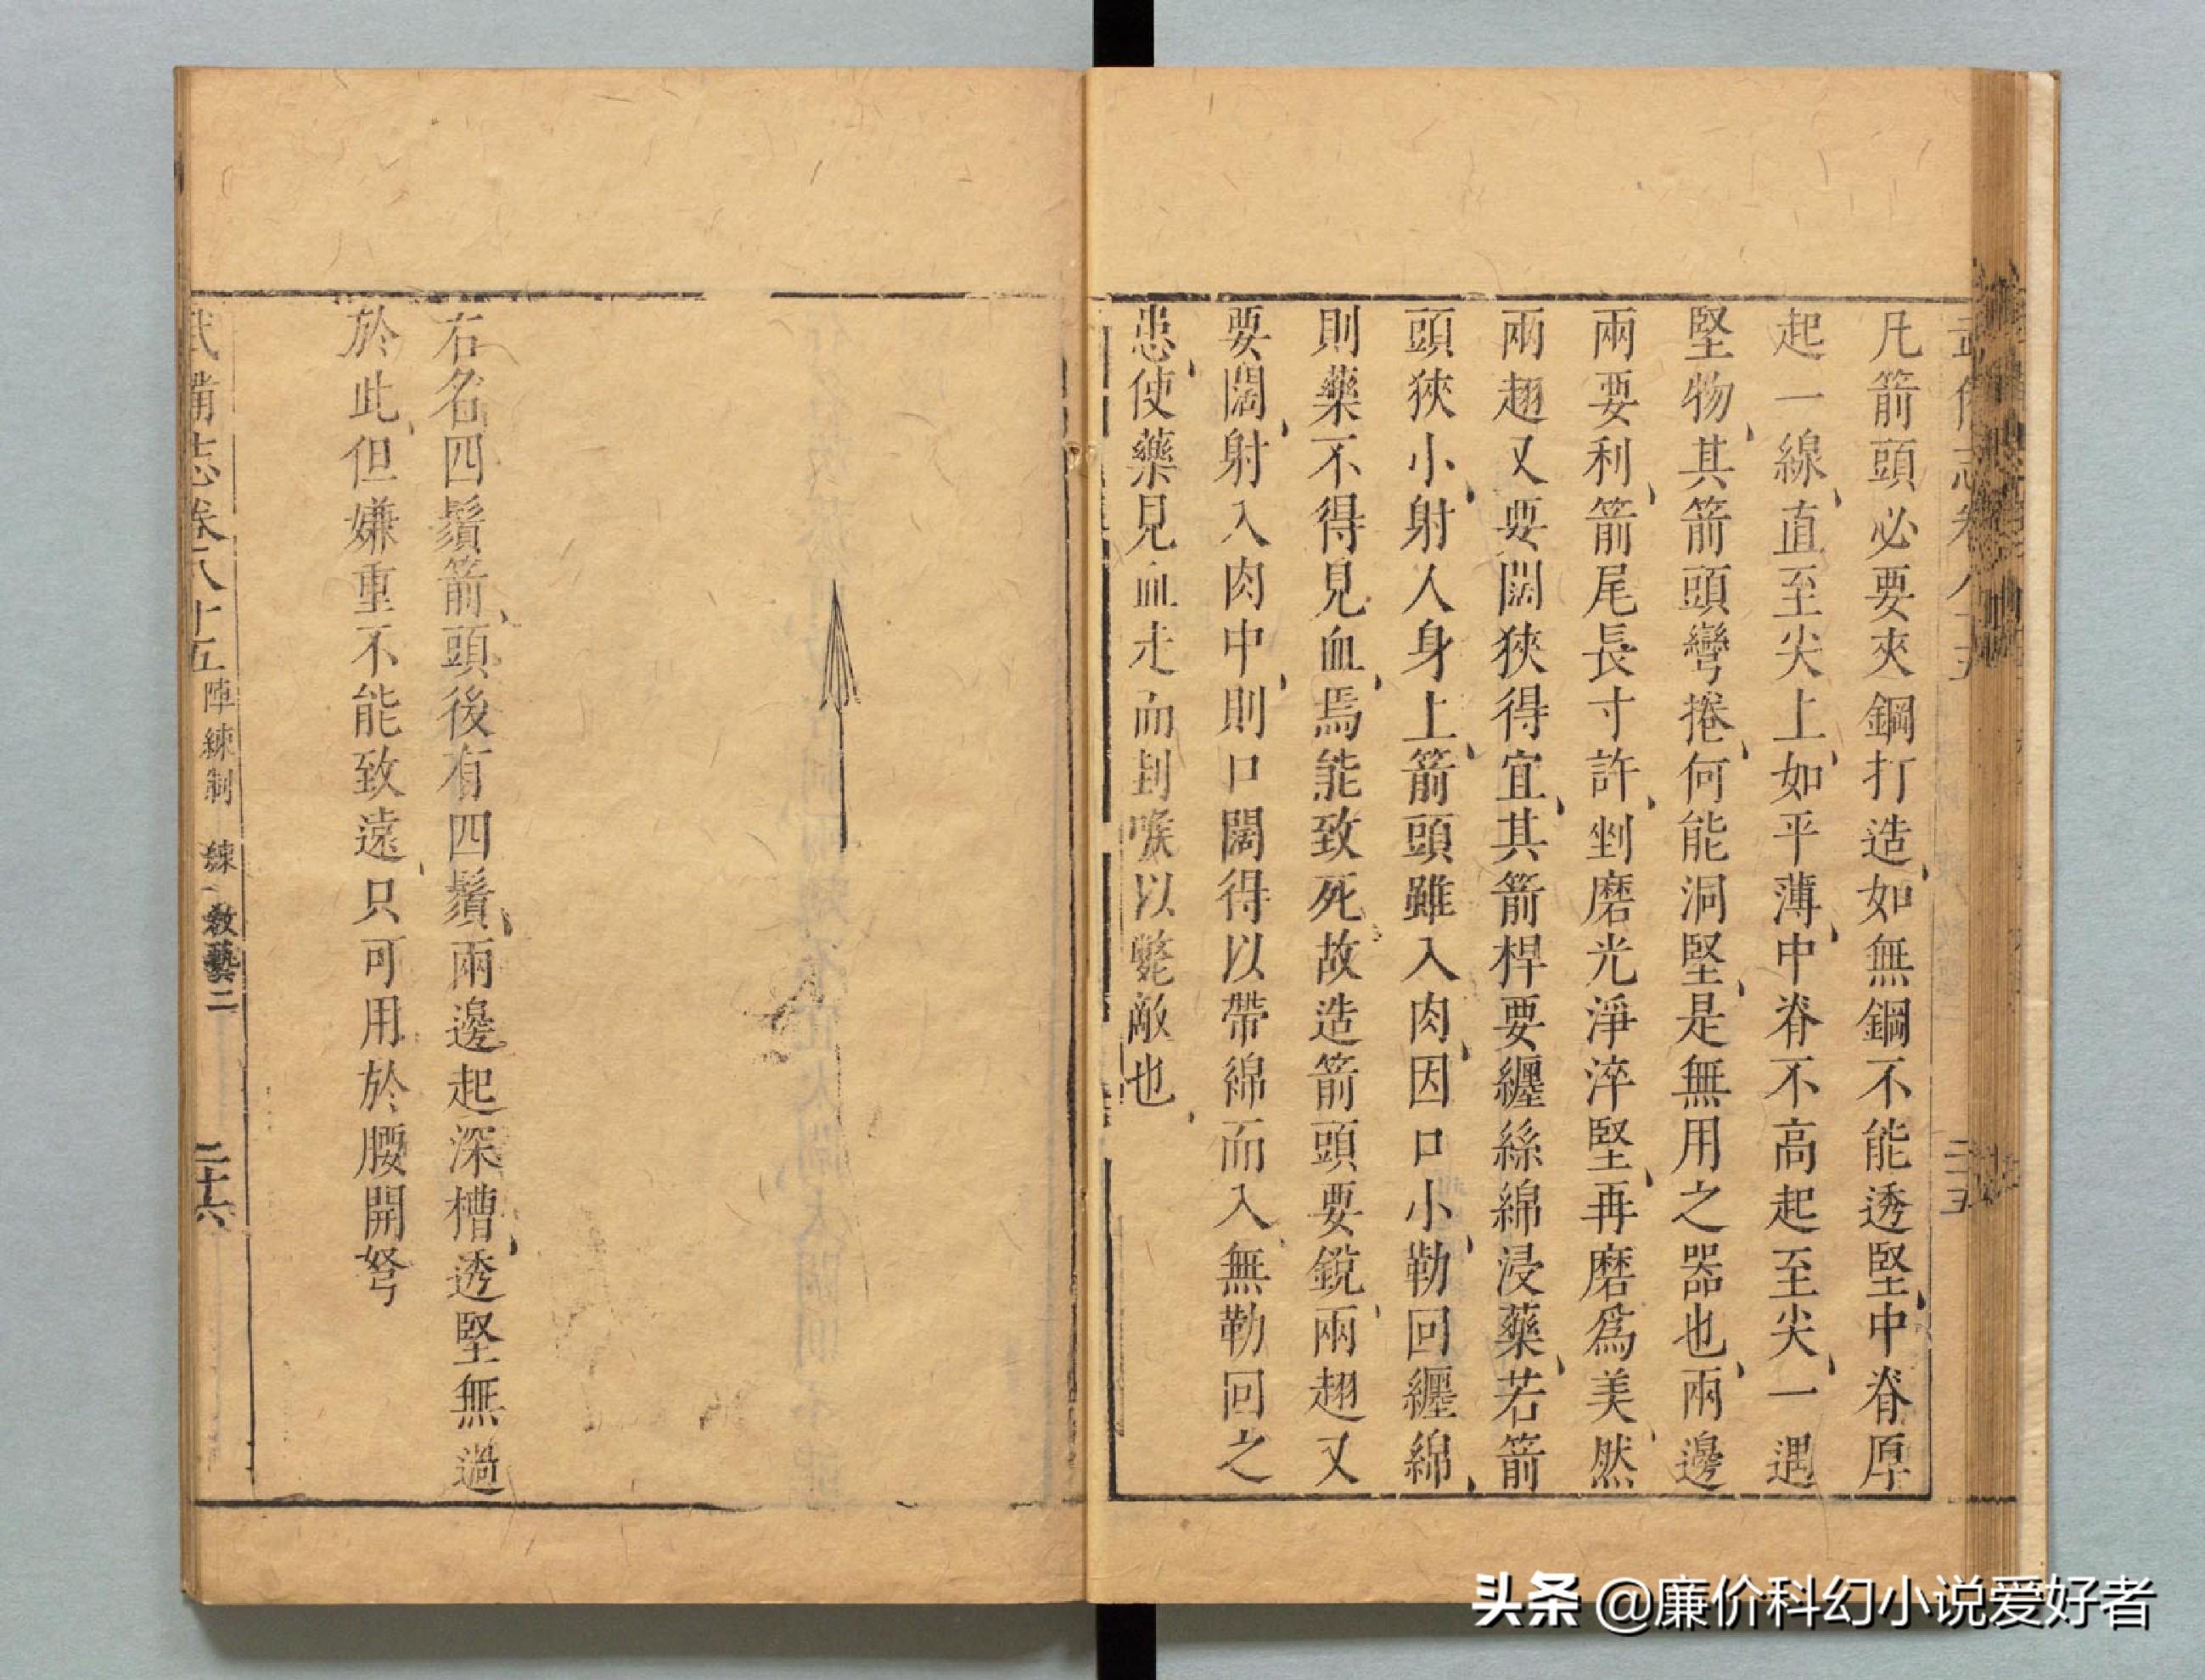 凡箭頭必要夾鋼打造如無鋼不能透堅中脊厚
起一線直至尖上如平薄中脊不高起至尖一遇
堅物其箭頭彎捲何能洞堅是無用之器也兩邊
兩要利箭尾長寸許剉磨光淨淬堅再磨爲美然
兩翅又要闊狹得宜其箭桿要纏絲綿浸藥若箭
頭狹小射人身上箭頭雖入肉因口小勒回纏綿
則藥不得見血焉能致死故造箭頭要鋭兩翅又
要闊射入肉中則口闊得以帶綿而入無勒回之
患使藥見血走而封喉以斃敵也
右名四鬚箭頭後有四鬚兩邊起深槽透堅無過
於此但嫌重不能致遠只可用於腰開弩
武備志卷八十五 陣練制 練 教藝二 二十六
頭条 @廉价科幻小说爱好者